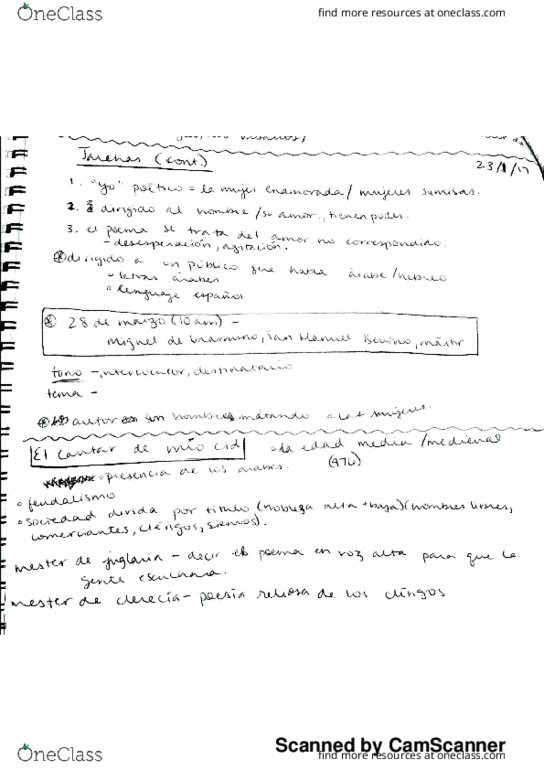 OneClass find more resources at oneclass.com
Jarchas (cont.) 23/1/17
1. "yo" poético = la mujer enamorada / mujeres sumisas.
2. dirigido al hombre / su amor, tienen poder.
3. el poema se trata del amor no correspondido.
- desesperación, agitación.
dirigido a un público que habla árabe / hebreo
letras árabes
lenguaje español
28 de marzo (10am) -
Miguel de Unamuno, San Manuel Bueno, mártir
tono - interlocutor, destinatario
tema -
autor un hombre matando a mujeres.
El cantar de mío cid la edad media / medieval
presencia de los árabes. (476)
feudalismo
sociedad divida por título (nobleza alta + baja) (hombres libres,
comerciantes, clérigos, siervos).
mester de juglaría - decir el poema en voz alta para que la
gente escuchara.
mester de clerecía - poesía reliosa de los clérigos
Scanned by CamScanner
OneClass find more resources at oneclass.com